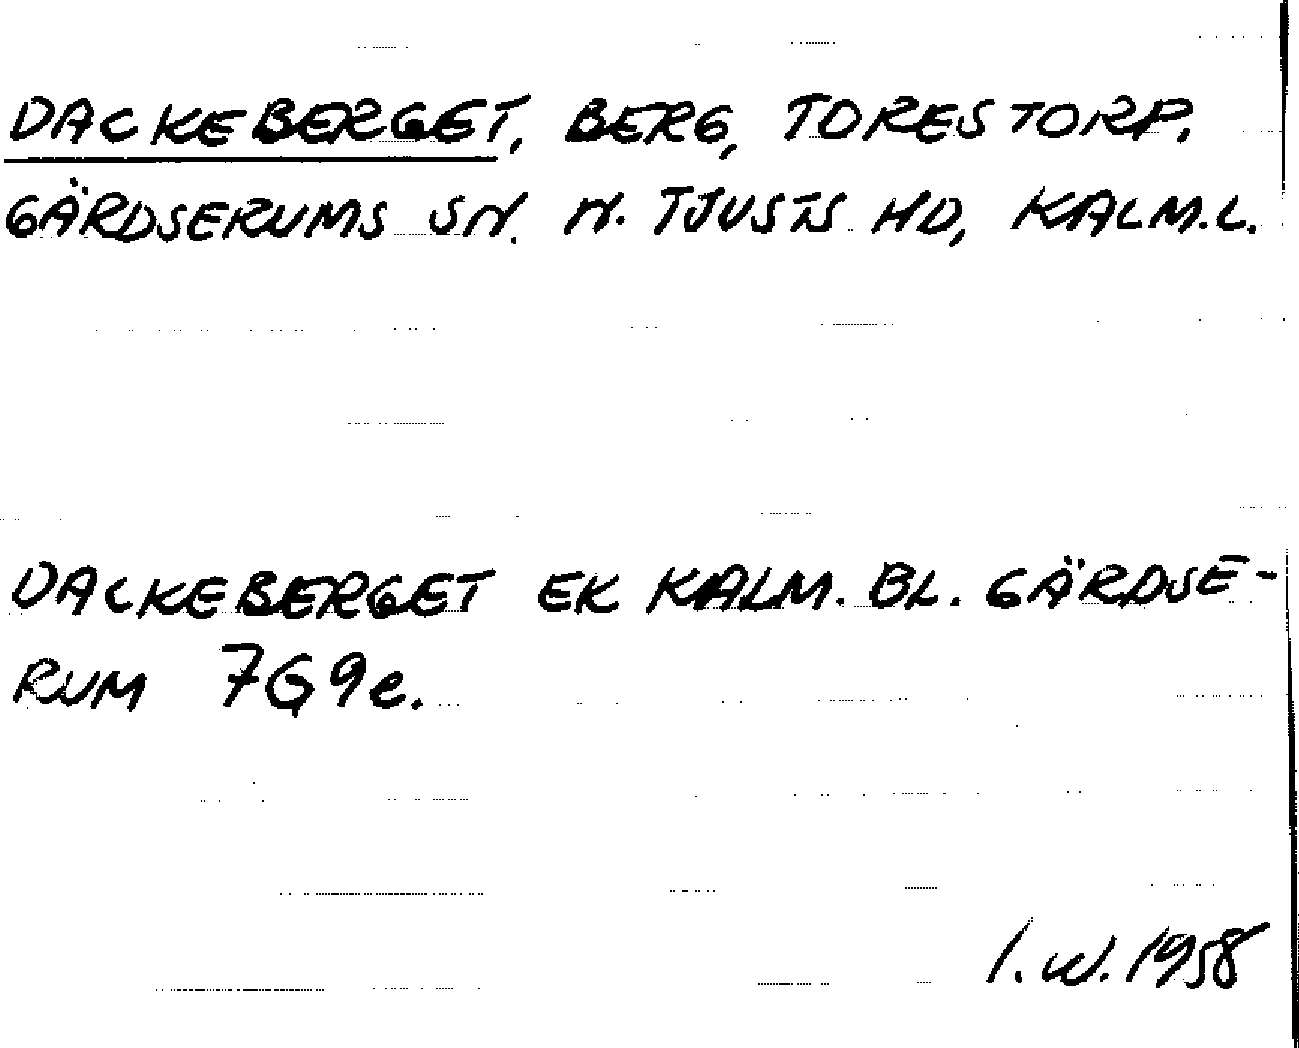 DACKEBERGET, BERG, TORESTORP.
GÄRDSERUMS SN. N. TJUSTS HD, KALM.L.
DACKEBERGET EK KALM. BL. GÄRDSE-
RUM 7G9e.
I.W. 1958